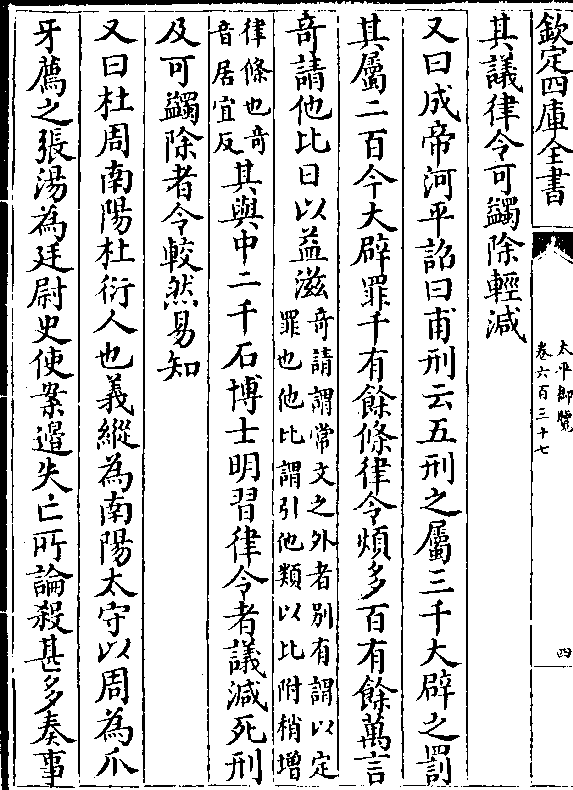 欽定四庫全書
太平御覽
卷六百三十七
四
其議律令可蠲除輕減
又曰成帝河平詔曰甫刑云五刑之屬三千大辟之罰
其屬二百今大辟罪千有餘條律令煩多百有餘萬言
奇請他比日以益滋
奇請謂常文之外者別有謂以定
罪也他比謂引他類以比附梢增
律條也奇
音居宜反
其與中二千石博士明習律令者議減死刑
及可蠲除者令較然易知
又曰杜周南陽杜衍人也義縱為南陽太守以周為爪
牙薦之張湯為廷尉史使案邉失亡所論殺甚多奏事